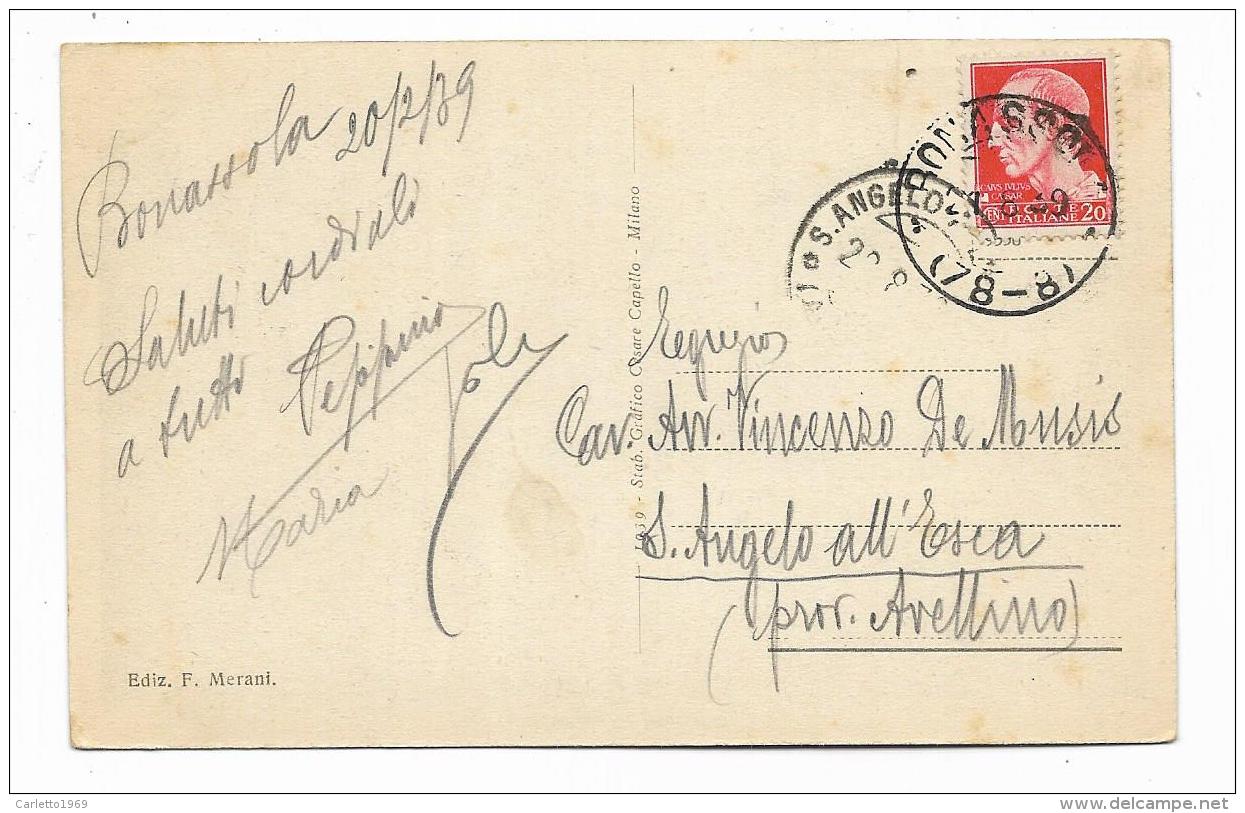 Bonassola 20/2/39
Saluti cordiali
a tutti Peppino
Maria
Ediz. F. Merani.
1939 - Stab. Grafico Cesare Capello - Milano
CAIVS IVLIVS
CAESAR
POSTE
ITALIANE 20
CENT
BONASSOLA
(78-8)
S. ANGELO
Egregio
Cav. Avv. Vincenzo De Musis
S. Angelo all'Esca
(prov. Avellino)
Carletto1969
http://www.delcampe.net